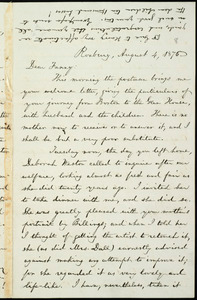 Roxbury, August 4, 1878
Dear Fanny
This morning the postman brings me
your welcome letter, giving the particulars of
your journey from Boston to the Glen House,
with husband and the children. There is no
mother way to receive or to answer it, and I
shall be but a very poor substitute.
Tuesday noon, the day you left home,
Deborah Weston called to enquire after our
welfare, looking almost as fresh and fair as
she did twenty years ago. I invited her
to take dinner with me, and she did so.
She was greatly pleased with your mother's
portrait by Billings; and when I told her
I thought of getting the artist to retouch it,
she (as did Mrs. Dall) earnestly advised
against making any attempt to improve it,
for she regarded it as very lovely and
life-like. I have, nevertheless, taken it